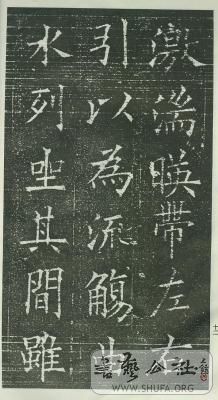 激湍暎帶左右
引以為流觴曲
水列坐其間雖
書藝公社
WWW.SHUFA.ORG